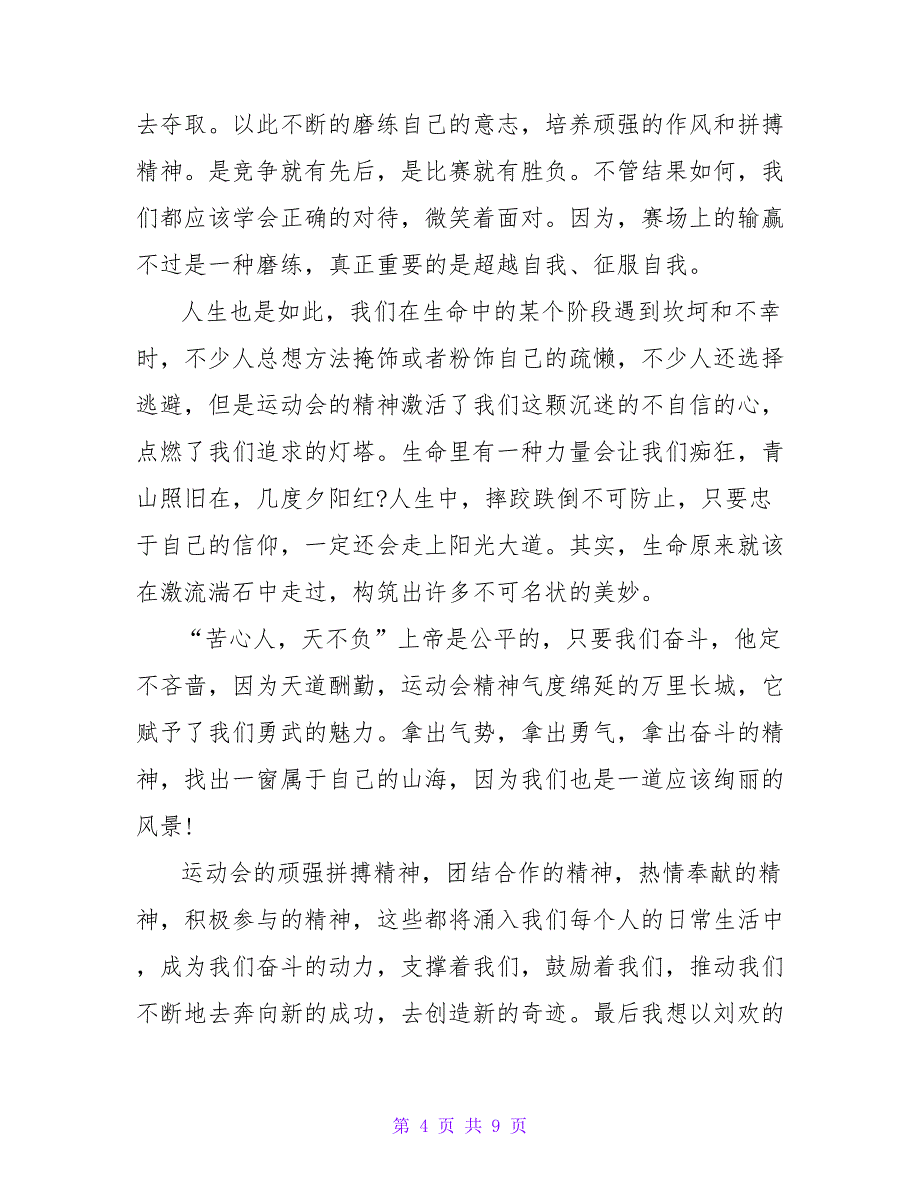 去夺取。以此不断的磨练自己的意志，培养顽强的作风和拼搏
精神。是竞争就有先后，是比赛就有胜负。不管结果如何，我
们都应该学会正确的对待，微笑着面对。因为，赛场上的输赢
不过是一种磨练，真正重要的是超越自我、征服自我。
人生也是如此，我们在生命中的某个阶段遇到坎坷和不幸
时，不少人总想方法掩饰或者粉饰自己的疏懒，不少人还选择
逃避，但是运动会的精神激活了我们这颗沉迷的不自信的心，
点燃了我们追求的灯塔。生命里有一种力量会让我们痴狂，青
山照旧在，几度夕阳红?人生中，摔跤跌倒不可防止，只要忠
于自己的信仰，一定还会走上阳光大道。其实，生命原来就该
在激流湍石中走过，构筑出许多不可名状的美妙。
“苦心人，天不负”上帝是公平的，只要我们奋斗，他定
不吝啬，因为天道酬勤，运动会精神气度绵延的万里长城，它
赋予了我们勇武的魅力。拿出气势，拿出勇气，拿出奋斗的精
神，找出一窗属于自己的山海，因为我们也是一道应该绚丽的
风景!
运动会的顽强拼搏精神，团结合作的精神，热情奉献的精
神，积极参与的精神，这些都将涌入我们每个人的日常生活中
，成为我们奋斗的动力，支撑着我们，鼓励着我们，推动我们
不断地去奔向新的成功，去创造新的奇迹。最后我想以刘欢的
第 4 页 共 9 页